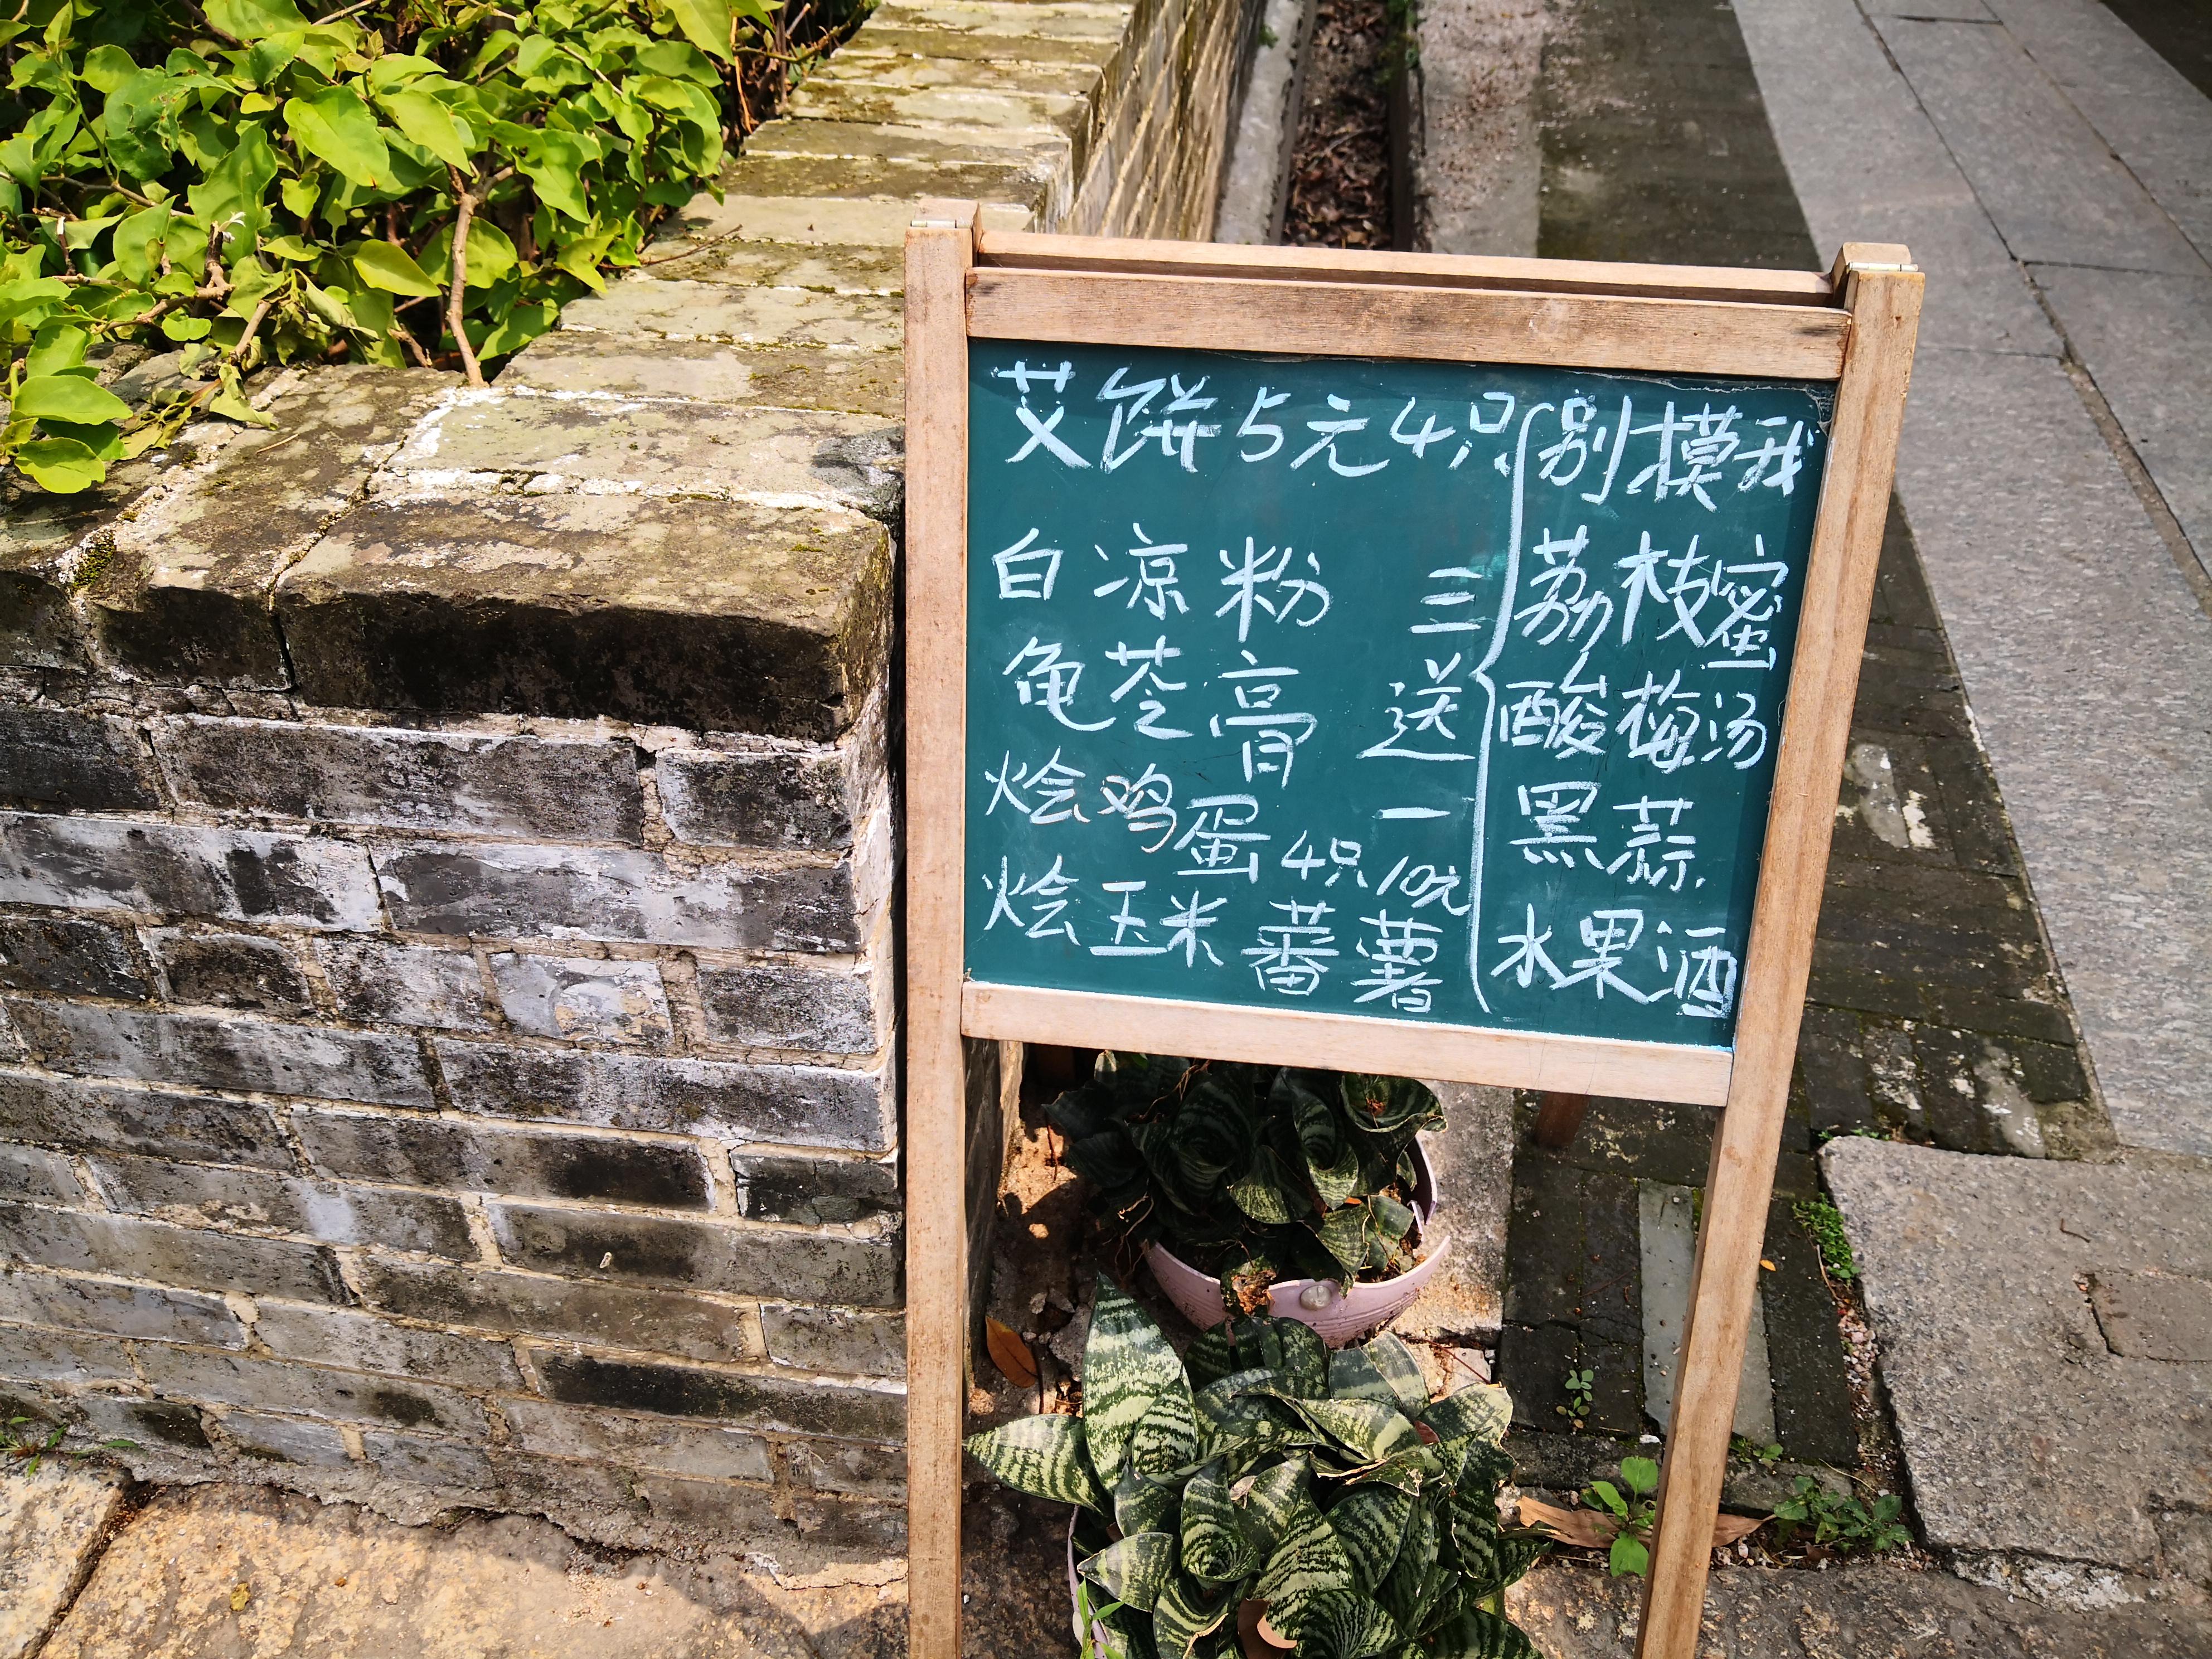 艾饼5元4只
白凉粉
龟苓膏
烩鸡蛋4只10元
烩玉米蕃薯
三送一
别摸我
荔枝蜜
酸梅汤
黑蒜
水果酒